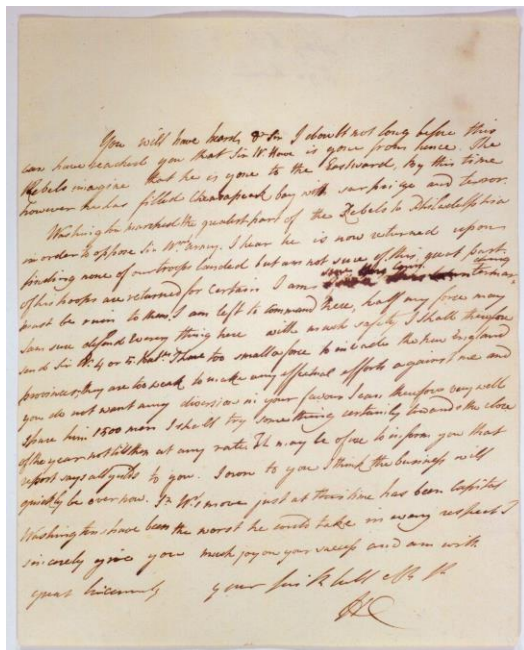 You will have heard, Dr Sir I doubt not long before this
can have reached you that Sir W. Howe is gone from hence. The
Rebels imagine that he is gone to the Eastward, by this time
however he has filled Chesapeak bay with surprize and terror.
Washington marched the greatest part of the Rebels to Philadelphia
in order to oppose Sir Wm's army. I hear he is now returned upon
finding none of our troops landed but am not sure of this, great part
of his troops are returned for certain I am sure this
must be ruin to them. I am left to command here, half my force may
I am sure defend every thing here with much safety I shall therefore
send Sir W. 4 or 5 Batns I have too small a force to invade the New England
provinces, they are too weak to make any effectual efforts against me and
you do not want any diversion in your favour I can therefore very well
spare him 1500 men I shall try something certainly towards the close
of the year not till then at any rate. It may be of use to inform you that
report says all yields to you. I own to you I think the business will
quickly be over now. Sr W's move just at this time has been capital
Washingtons have been the worst he could take in every respect I
sincerely give you much joy on your success and am with
great Sincerity your
HC